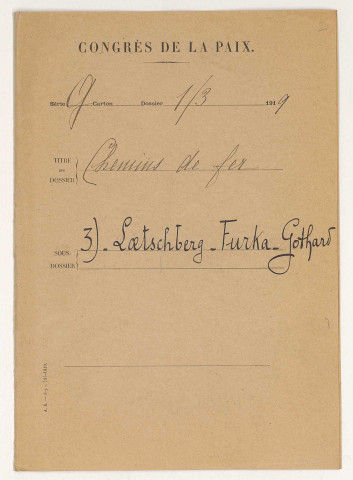 CONGRÈS DE LA PAIX.
Série G Carton Dossier 1/3 1919
TITRE DU DOSSIER Chemins de fer
SOUS-DOSSIER 3). Lœtschberg - Furka - Gothard